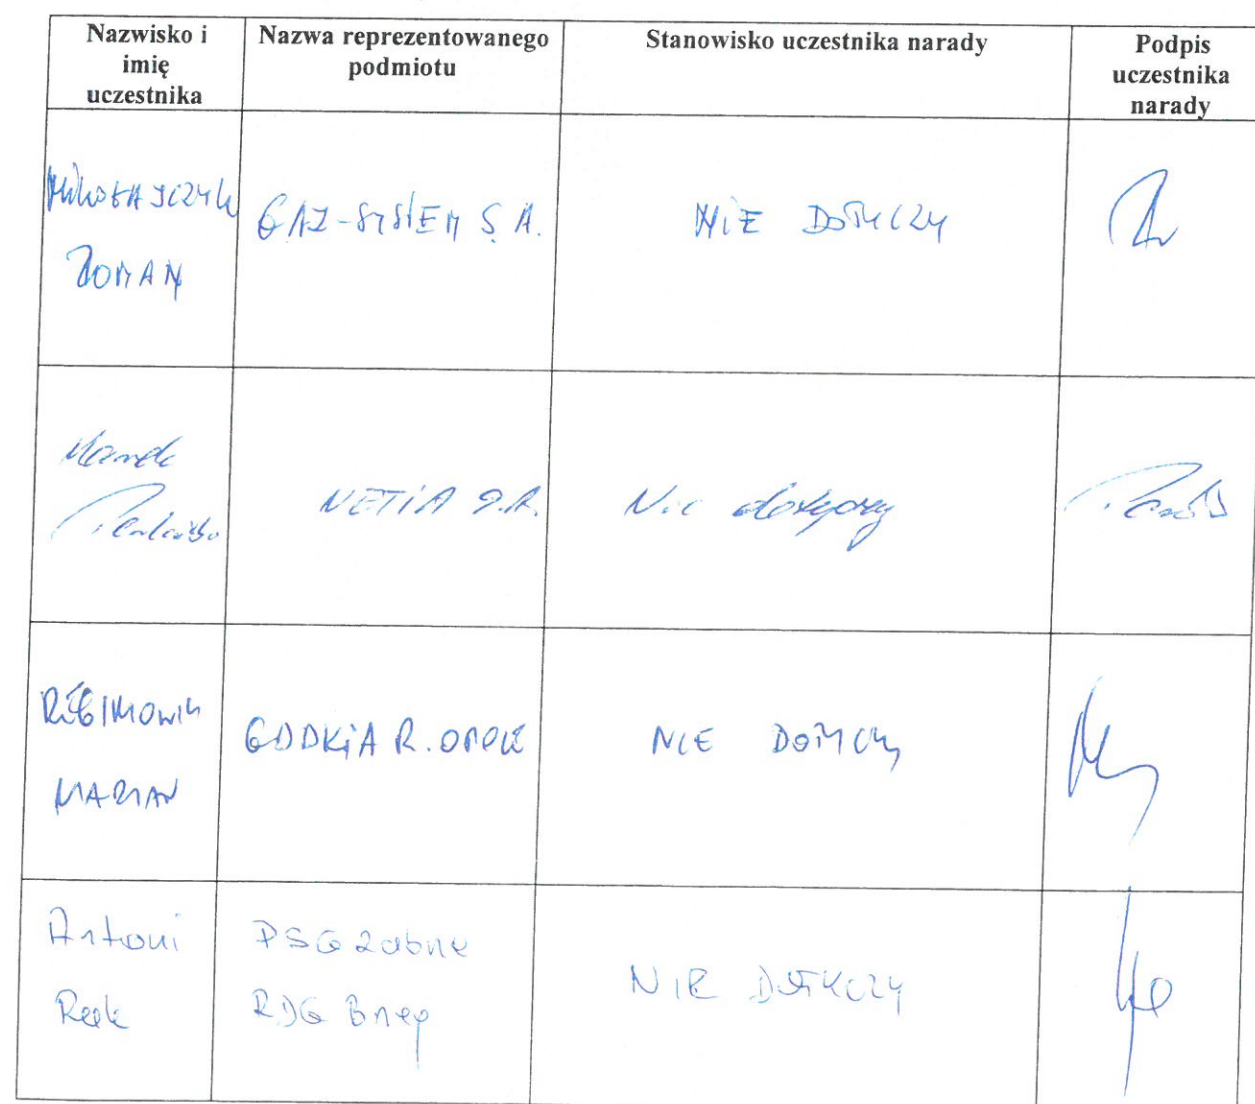 Nazwisko i
imię
uczestnika
Nazwa reprezentowanego
podmiotu
Stanowisko uczestnika narady
Podpis
uczestnika
narady
MIKOŁAJCZYK
ROMAN
GAZ-SYSTEM S.A.
NIE DOTYCZY
Marek
NETIA S.A.
Nie dotyczy
MARIAN
GDDKiA R. OPOLE
NIE DOTYCZY
Antoni
PSG Zabrze
RDG Brzeg
NIE DOTYCZY